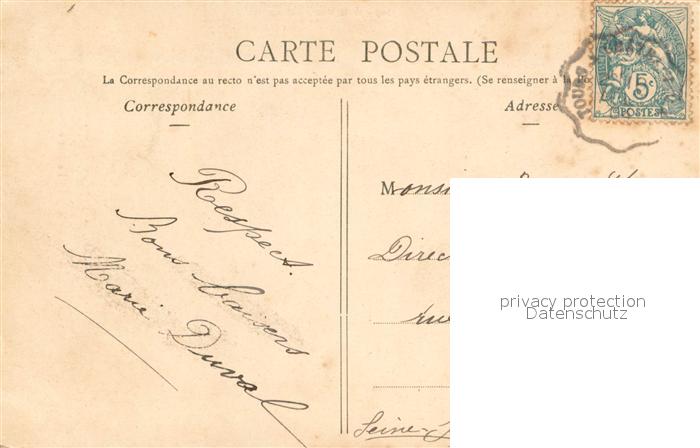 CARTE POSTALE
La Correspondance au recto n'est pas acceptée par tous les pays étrangers. (Se renseigner à la Po
Correspondance
Adresse
5c
POSTES
TOURS
Respect.
Bons baisers
Marie Duval
Monsi
Direc
rue
Seine-
privacy protection
Datenschutz